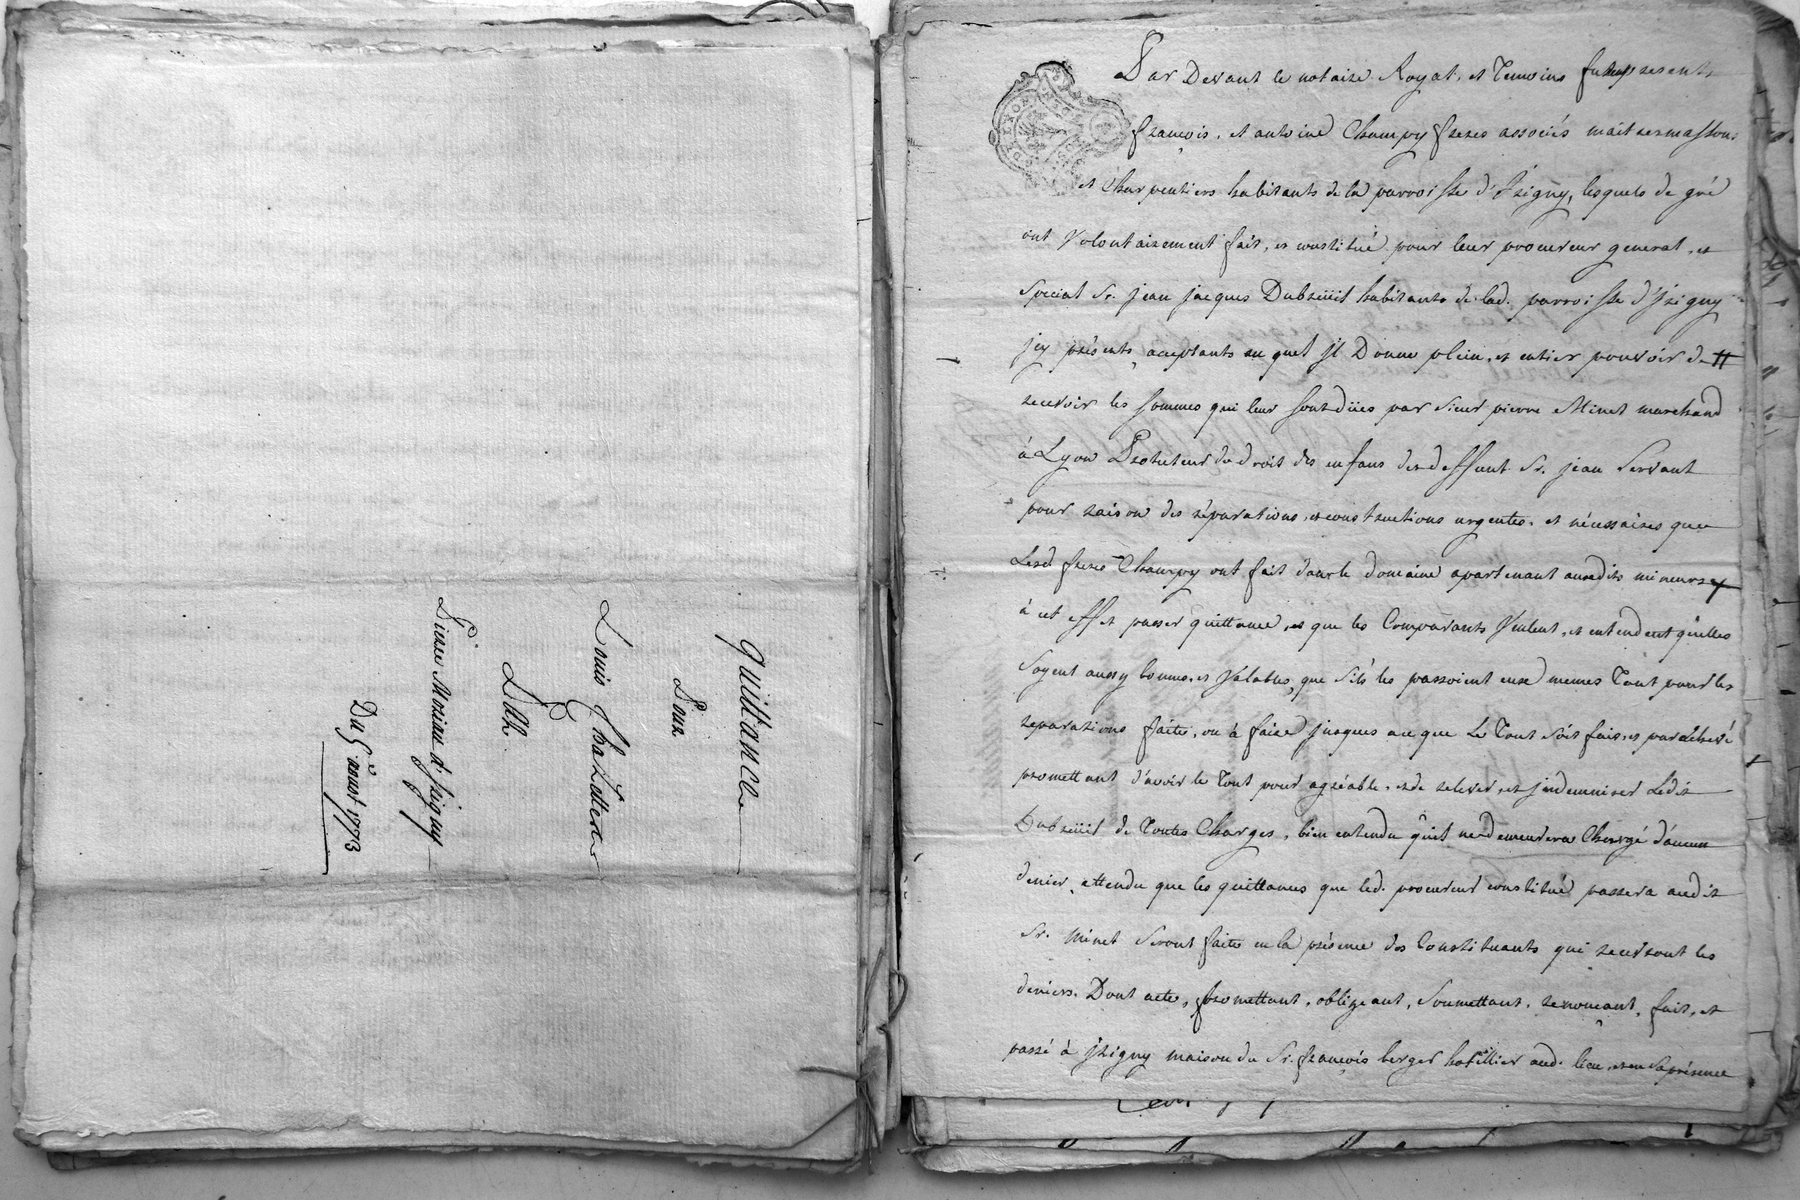 quittance
Pour
Louis Chalettere
Sieur Moziau d'Jzigny
Du 5e aoust 1773
Par Devant le notaire Royal, et Temoins furent presents
françois, et antoine Champy freres associés maitres massons
et Charpentiers habitants de la parroisse d'Jzigny, lesquels de gré
ont Volontairement fait, et constitué pour leur procureur general, et
Special Sr. jean jacques Dubreüil habitants de lad. parroisse d'Jzigny
jcy présents, acceptants au quel jl Donne plein, et entier pouvoir de
recevoir les sommes qui leur sont düés par Sieur pierre Minet marchand
à Lyon Protuteur de droit des enfans de deffunt Sr. jean Servant
pour raison des réparations, et constructions urgentes, et nécessaires que
Lesd. freres Champy ont fait dans le domaine apartenant ausdits mineurs
à cet effet passer quittance, et que les Comparants Veulent, et entendent qu'elles
Soyent aussy bonnes, et Valables, que s'ils les passoient eux memes Tout pour les
reparations faites, ou à faire jusques a ce que Le Tout soit fait, et parachevé
promettant d'avoir le Tout pour agréable, et de relever, et jndemniser Ledit
Dubreüil de Toutes Charges, bien entendu qu'il ne demeurera Chargé d'aucun
denier, attendu que les quittances que led. procureur constitué passera audit
Sr. Minet Seront faites en la présence des Constituants qui recevront les
deniers. Dont acte, promettant, obligeant, Soumettant, renonçant, fait, et
passé à jzigny maison du Sr. françois berger hotellier aud. lieu, et en sa présence